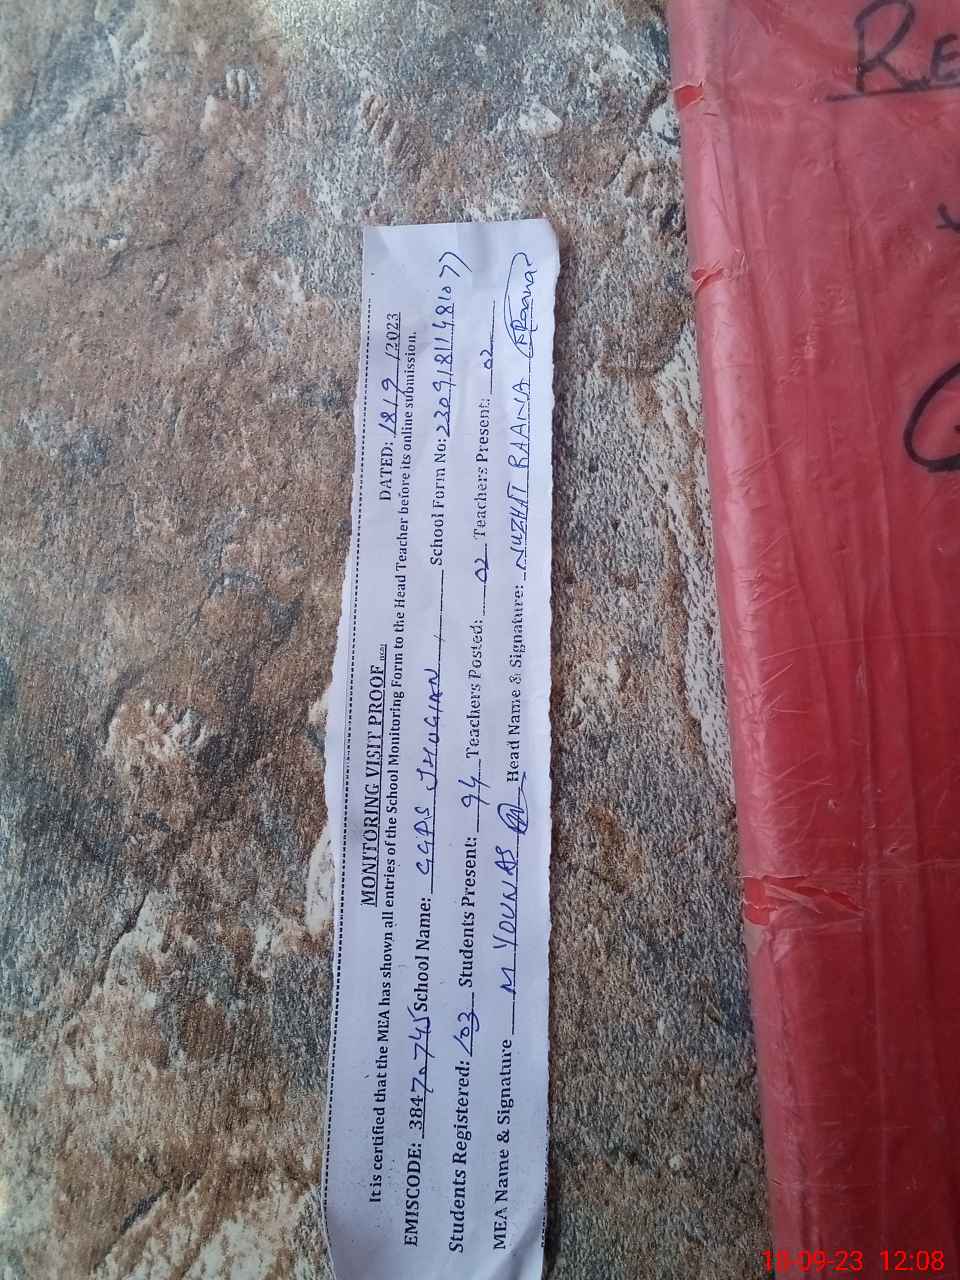 MONITORING VISIT PROOF
DATED: 18/9/2023
It is certified that the MEA has shown all entries of the School Monitoring Form to the Head Teacher before its online submission.
EMISCODE: 38470745 School Name: GGPS JHUGIAN School Form No: 23091811481077
Students Registered: 103 Students Present: 94 Teachers Posted: 02 Teachers Present: 02
MEA Name & Signature M YOUNAS Head Name & Signature: NUZHAT RAANA Raana
RE
18-09-23 12:08